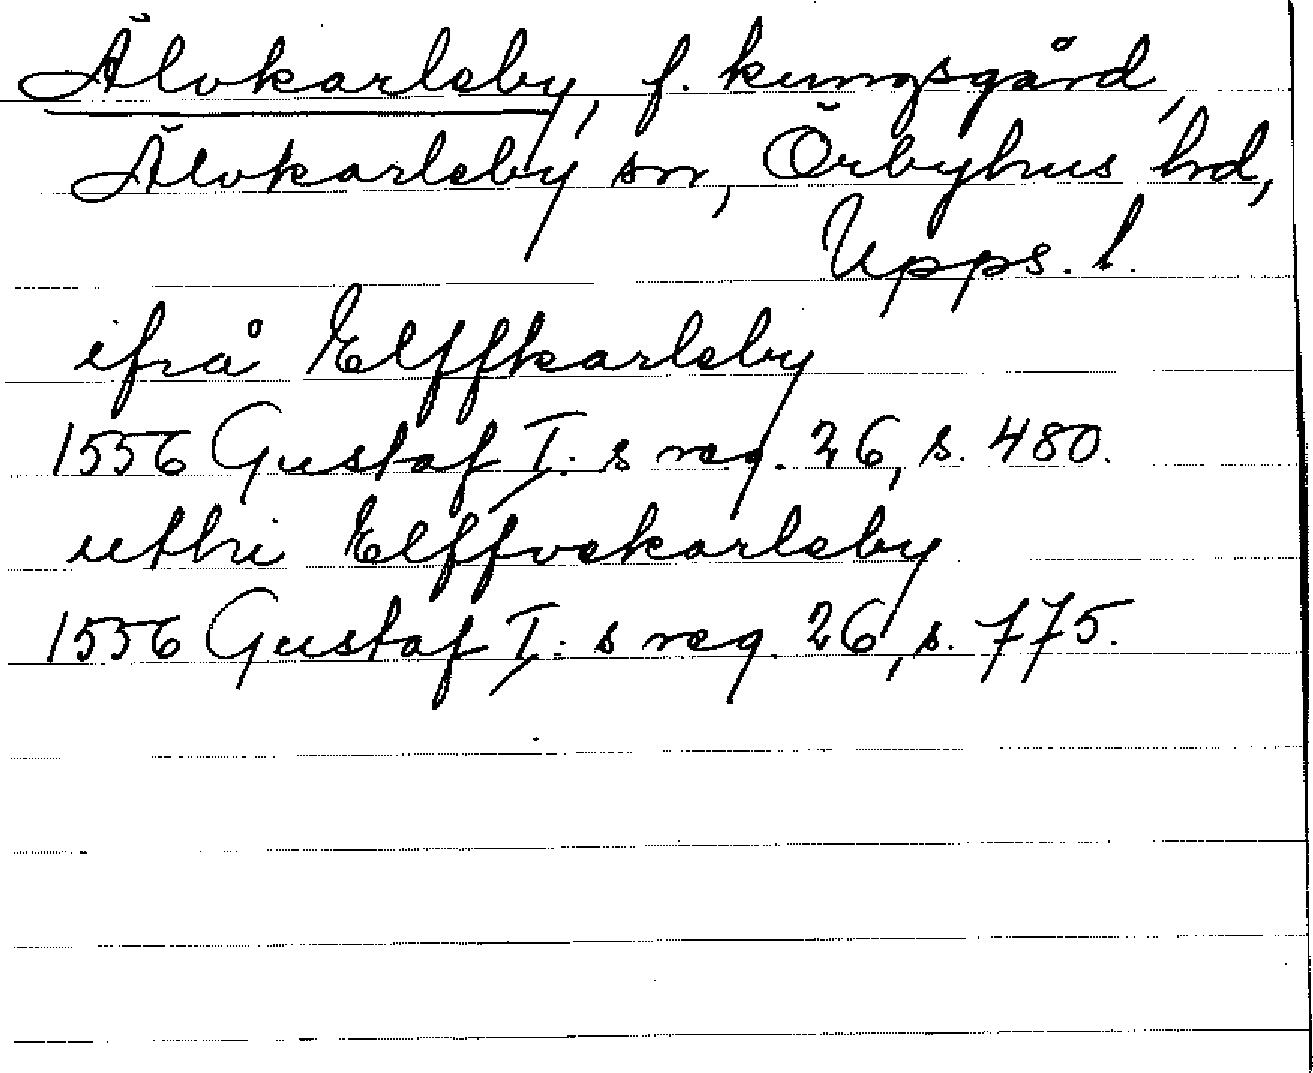 Älvkarleby, f. kungsgård,
Älvkarleby sn, Örbyhus hd,
Upps. l.
ifrå Elffkarleby
1556 Gustaf I:s reg. 26, s. 480.
uthi Elffvekarleby
1556 Gustaf I:s reg. 26, s. 775.